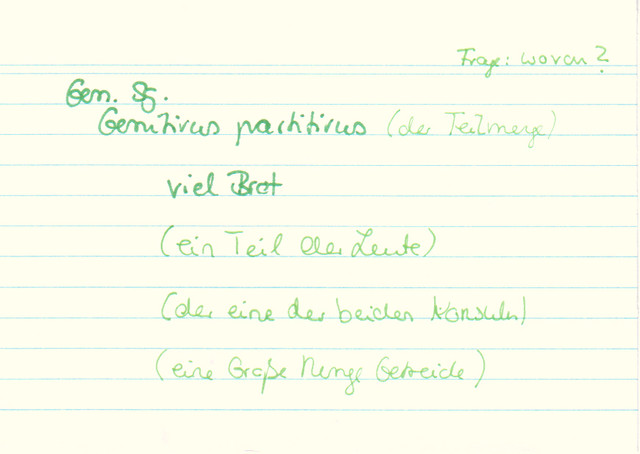 Frage: wovon?
Gen. Sg.
Genitivus partitivus (der Teilmenge)
viel Brot
(ein Teil der Leute)
(der eine der beiden Konsuln)
(eine Große Menge Getreide)